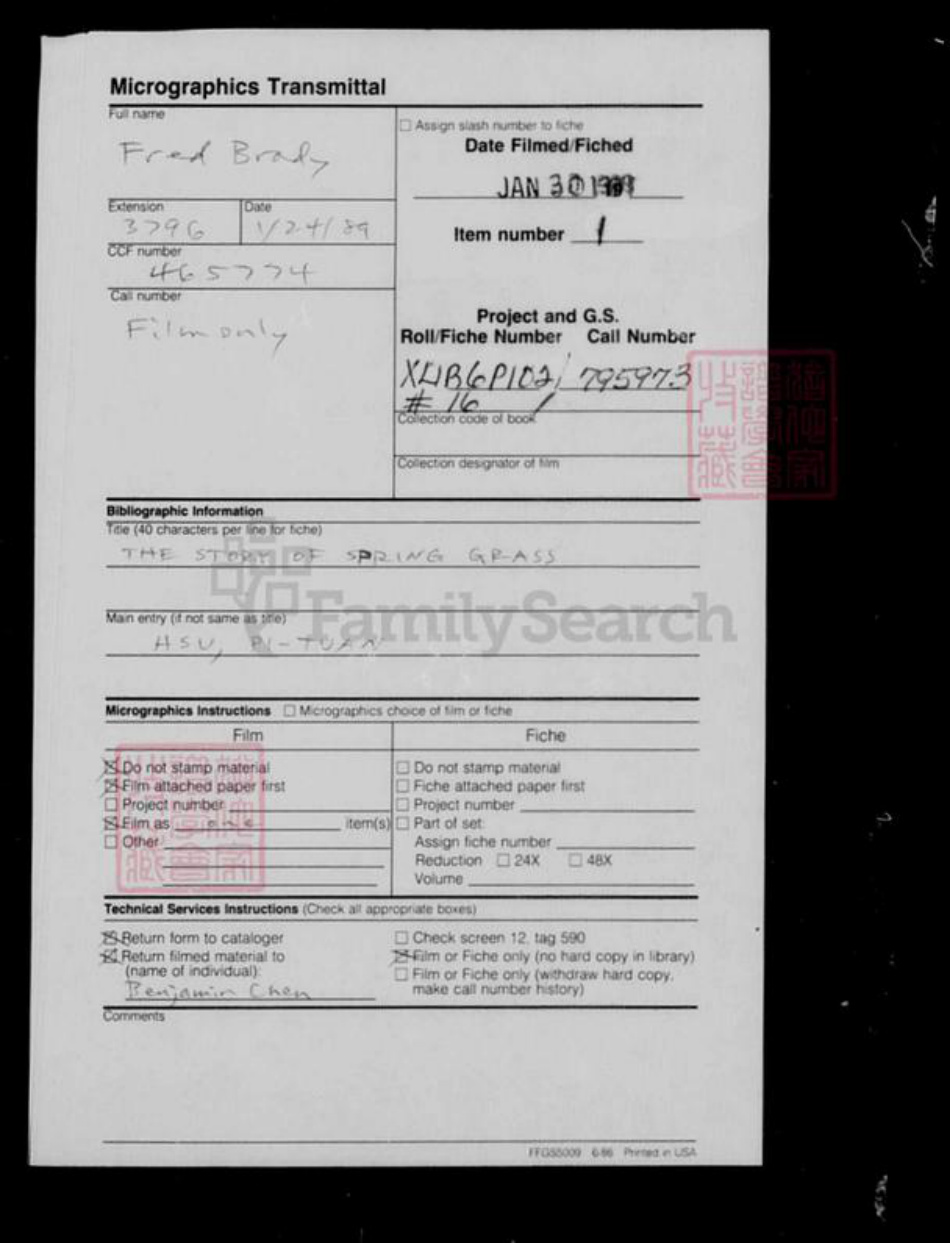 Micrographics Transmittal
Full name
Fred Brady
☐ Assign slash number to fiche
Date Filmed/Fiched
JAN 30 1989
Extension
3796
Date
1/24/89
Item number 1
CCF number
465774
Call number
Film only
Project and G.S.
Roll/Fiche Number Call Number
XLIB6P102/ 795973
# 16
Collection code of book
Collection designator of film
Bibliographic Information
Title (40 characters per line for fiche)
THE STORY OF SPRING GRASS
FamilySearch
Main entry (if not same as title)
HSU, PI-TUAN
Micrographics Instructions ☐ Micrographics choice of film or fiche
Film
☒ Do not stamp material
☒ Film attached paper first
☐ Project number
☒ Film as one item(s)
☐ Other
Fiche
☐ Do not stamp material
☐ Fiche attached paper first
☐ Project number
☐ Part of set:
Assign fiche number
Reduction ☐ 24X ☐ 48X
Volume
Technical Services Instructions (Check all appropriate boxes)
☒ Return form to cataloger
☒ Return filmed material to
(name of individual):
Benjamin Chen
☐ Check screen 12, tag 590
☒ Film or Fiche only (no hard copy in library)
☐ Film or Fiche only (withdraw hard copy,
make call number history)
Comments
FFGS5009 6-86 Printed in USA